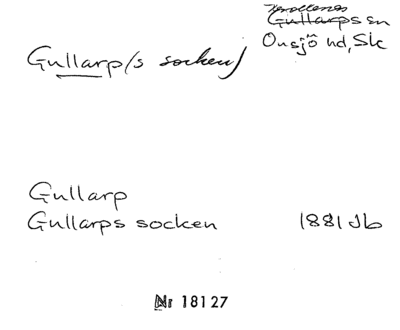 Gullarps sn
Onsjö hd, Sk
Gullarp/s socken/
Gullarp
Gullarps socken 1881 Jb
Nr 18127